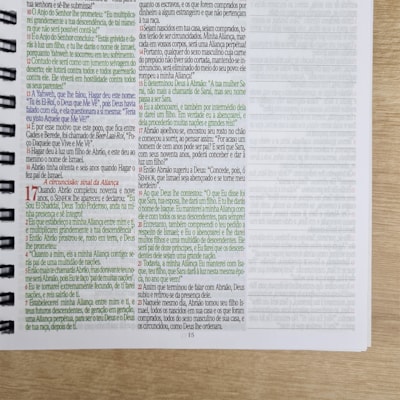 senhora e sê-lhe submissa!"
10 O Anjo do Senhor lhe prometeu: "Eu multiplica-
rei grandemente a tua descendência, de tal manei-
ra que não será possível contá-la!"
11 E o Anjo do Senhor concluiu: "Estás grávida e da-
rás à luz um filho, e tu lhe darás o nome de Ismael,
porquanto Yahweh te socorreu em teu sofrimento.
12 Contudo ele será como um jumento selvagem do
deserto; ele lutará contra todos e todos guerrearão
contra ele. Ele viverá em hostilidade contra todos
os seus parentes!"
13 A Yahweh, que lhe falou, Hagar deu este nome:
"Tu és El-Roi, o Deus que Me Vê", pois Deus havia
falado com ela, e ela questionara a si mesma: "Teria
eu visto Aquele que Me Vê?"
14 É por esse motivo que este poço, que fica entre
Cades e Berede, foi chamado de Beer-Laai-Roi, "Po-
ço Daquele que Vive e Me Vê".
15 Hagar deu à luz um filho de Abrão, e este deu ao
menino o nome de Ismael.
16 Abrão tinha oitenta e seis anos quando Hagar o
fez pai de Ismael.
A circuncisão: sinal da Aliança
17 Quando Abrão completou noventa e nove
anos, o SENHOR lhe apareceu e declarou: "Eu
Sou El-Shaddai, Deus Todo-Poderoso, anda na mi-
nha presença e sê íntegro!
2 Eu que estabeleço minha Aliança entre mim e ti,
e multiplicarei grandemente a tua descendência!"
3 Então Abrão prostrou-se, rosto em terra, e Deus
lhe prometeu:
4 "Quanto a mim, eis a minha Aliança contigo: se-
rás pai de uma multidão de nações.
5 E não mais te chamarás Abrão, mas doravante teu no-
me será Abraão, pois Eu te faço pai de muitas nações!
6 Eu te tornarei extremamente fecundo, de ti farei
nações, e reis sairão de ti.
7 Estabelecerei minha Aliança entre mim e ti, e
teus futuros descendentes, de geração em geração,
uma Aliança perpétua, para ser o teu Deus e o Deus
de tua raça, depois de ti.
quanto os escravos, e os que forem comprados por
dinheiro a algum estrangeiro e que não pertençam
à tua raça.
13 Sejam nascidos em tua casa, sejam comprados, to-
dos terão de ser circuncidados. Minha Aliança, mar-
cada em vossos corpos, será uma Aliança perpétua!
14 Portanto, qualquer do sexo masculino cuja carne
do prepúcio não tiver sido cortada, mantendo-se in-
circunciso, será eliminado do meio do seu povo: ele
rompeu a minha Aliança!"
15 E determinou Deus a Abraão: "A tua mulher Sa-
rai, não mais a chamarás de Sarai, mas seu nome
passa a ser Sara.
16 Eu a abençoarei, e também por intermédio dela
te darei um filho. Em verdade Eu a abençoarei, e
dela procederão muitas nações e grandes reis!"
17 Abraão ajoelhou-se, encostou seu rosto no chão
e começou a sorrir, ao pensar consigo mesmo: "Por acaso um
homem de cem anos pode ser pai? E será que Sara,
com seus noventa anos, poderá conceber e dar à
luz um filho?"
18 Então Abraão sugeriu a Deus: "Concede, pois, ó
SENHOR, que Ismael seja abençoado e se torne meu
herdeiro!"
19 Ao que Deus lhe contestou: "O que Eu disse foi
que Sara, tua esposa, te dará um filho. E tu lhe darás
o nome de Isaque. Eu manterei a minha Aliança com
ele e com todos os seus descendentes, para sempre!
20 Entretanto, também compreendo o teu pedido a
respeito de Ismael; e Eu o abençoarei e lhe darei
muitos filhos e uma multidão de descendentes. Ele
será pai de doze príncipes, e Eu farei que os descen-
dentes dele sejam uma grande nação.
21 Todavia, a minha Aliança Eu manterei com Isa-
que, teu filho, que Sara dará à luz nesta mesma épo-
ca, no ano que vem!"
22 Assim que terminou de falar com Abraão, Deus
subiu e retirou-se da presença dele.
23 Naquele mesmo dia, Abraão tomou seu filho Is-
mael, todos os nascidos em sua casa e os que foram
comprados, todos do sexo masculino de sua casa, e
os circuncidou, como Deus lhe ordenara.
15